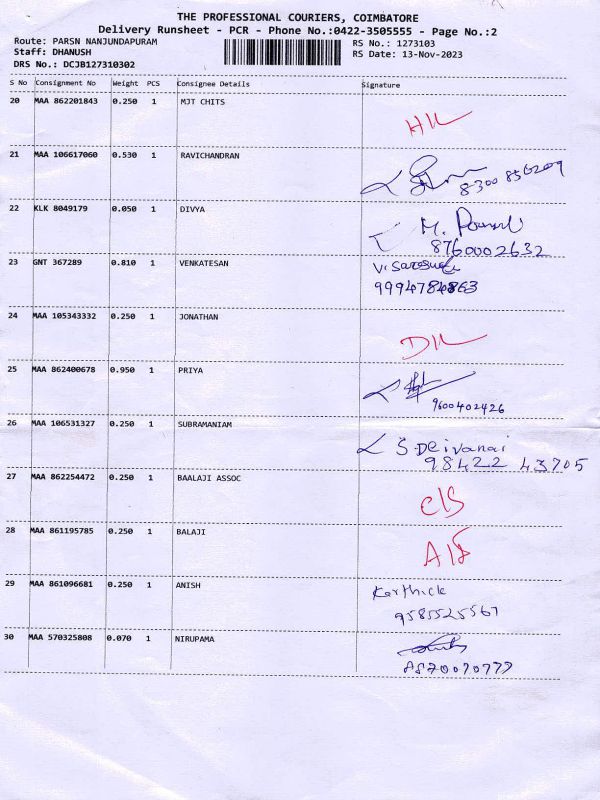 THE PROFESSIONAL COURIERS, COIMBATORE
Delivery Runsheet - PCR - Phone No.:0422-3505555 - Page No.:2
Route: PARSN NANJUNDAPURAM RS No.: 1273103
Staff: DHANUSH RS Date: 13-Nov-2023
DRS No.: DCJB127310302
S No Consignment No Weight PCS Consignee Details Signature
20 MAA 862201843 0.250 1 MJT CHITS
21 MAA 106617060 0.530 1 RAVICHANDRAN
8300856209
22 KLK 8049179 0.050 1 DIVYA
M.
8760002632
23 GNT 367289 0.810 1 VENKATESAN
24 MAA 105343332 0.250 1 JONATHAN
25 MAA 862400678 0.950 1 PRIYA
9600402426
26 MAA 106531327 0.250 1 SUBRAMANIAM
S. Deivanai
98422 43705
27 MAA 862254472 0.250 1 BAALAJI ASSOC
28 MAA 861195785 0.250 1 BALAJI
29 MAA 861096681 0.250 1 ANISH
Karthick
9585525567
30 MAA 570325808 0.070 1 NIRUPAMA